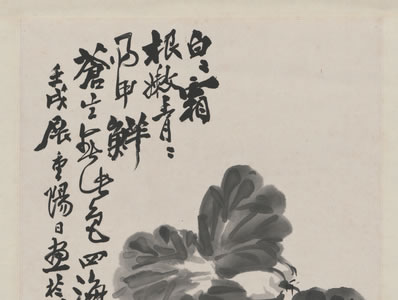 白〻霜
根嫩青〻
甲鮮
蒼生無此色四海
壬戌展重陽日畫於